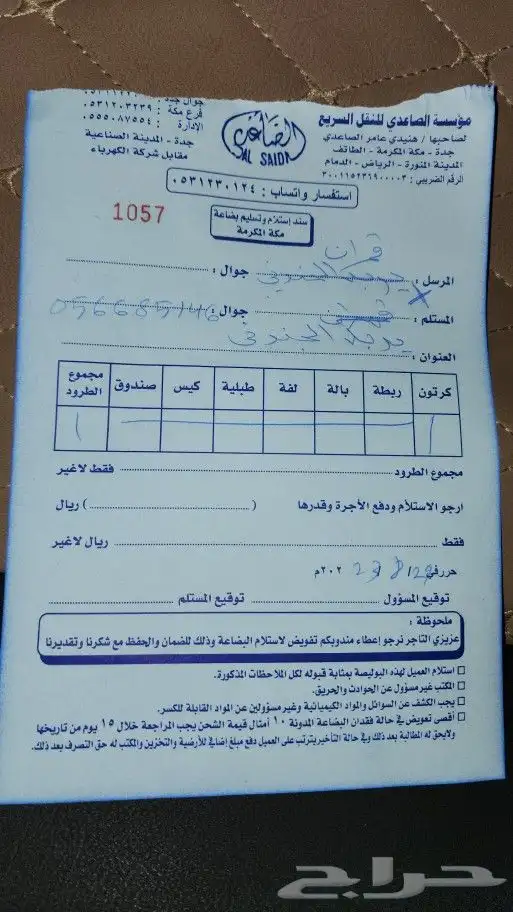 مؤسسة الصاعدي للنقل السريع
لصاحبها / هنيدي عامر الصاعدي
جدة - مكة المكرمة - الطائف
المدينة المنورة - الرياض - الدمام
الرقم الضريبي : ٣٠٠١١٥٢٣١٩٠٠٠٠٣
الصاعدي
AL SAIDI
جوال جدة :
فرع مكة : ٠٥٣١٢٠٣٢٣٩
الإدارة : ٠٥٥٥٠٨٧٥٥٤
جدة - المدينة الصناعية
مقابل شركة الكهرباء
استفسار واتساب : ٠٥٣١٢٣٠١٢٤
1057
سند إستلام وتسليم بضاعة
مكة المكرمة
المرسل : جوال :
المستلم : جوال : 0566685146
العنوان :
كرتون ربطة بالة لفة طبلية كيس صندوق مجموع الطرود
١ ١
مجموع الطرود فقط لاغير
ارجو الاستلام ودفع الأجرة وقدرها ( ) ريال
فقط ريال لاغير
حرر في ٢٠٢م
توقيع المسؤول توقيع المستلم
ملحوظة :
عزيزي التاجر نرجو إعطاء مندوبكم تفويض لاستلام البضاعة وذلك للضمان والحفظ مع شكرنا وتقديرنا
استلام العميل لهذه البوليصة بمثابة قبوله لكل الملاحظات المذكورة.
المكتب غير مسؤول عن الحوادث والحريق.
يجب الكشف عن السوائل والمواد الكيميائية وغير مسؤولين عن المواد القابلة للكسر.
أقصى تعويض في حالة فقدان البضاعة المدونة ١٠ أمثال قيمة الشحن يجب المراجعة خلال ١٥ يوم من تاريخها
ولايحق له المطالبة بعد ذلك وفي حالة التأخير يترتب على العميل دفع مبلغ إضافي للأرضية والتخزين والمكتب له حق التصرف بعد ذلك.
حراج